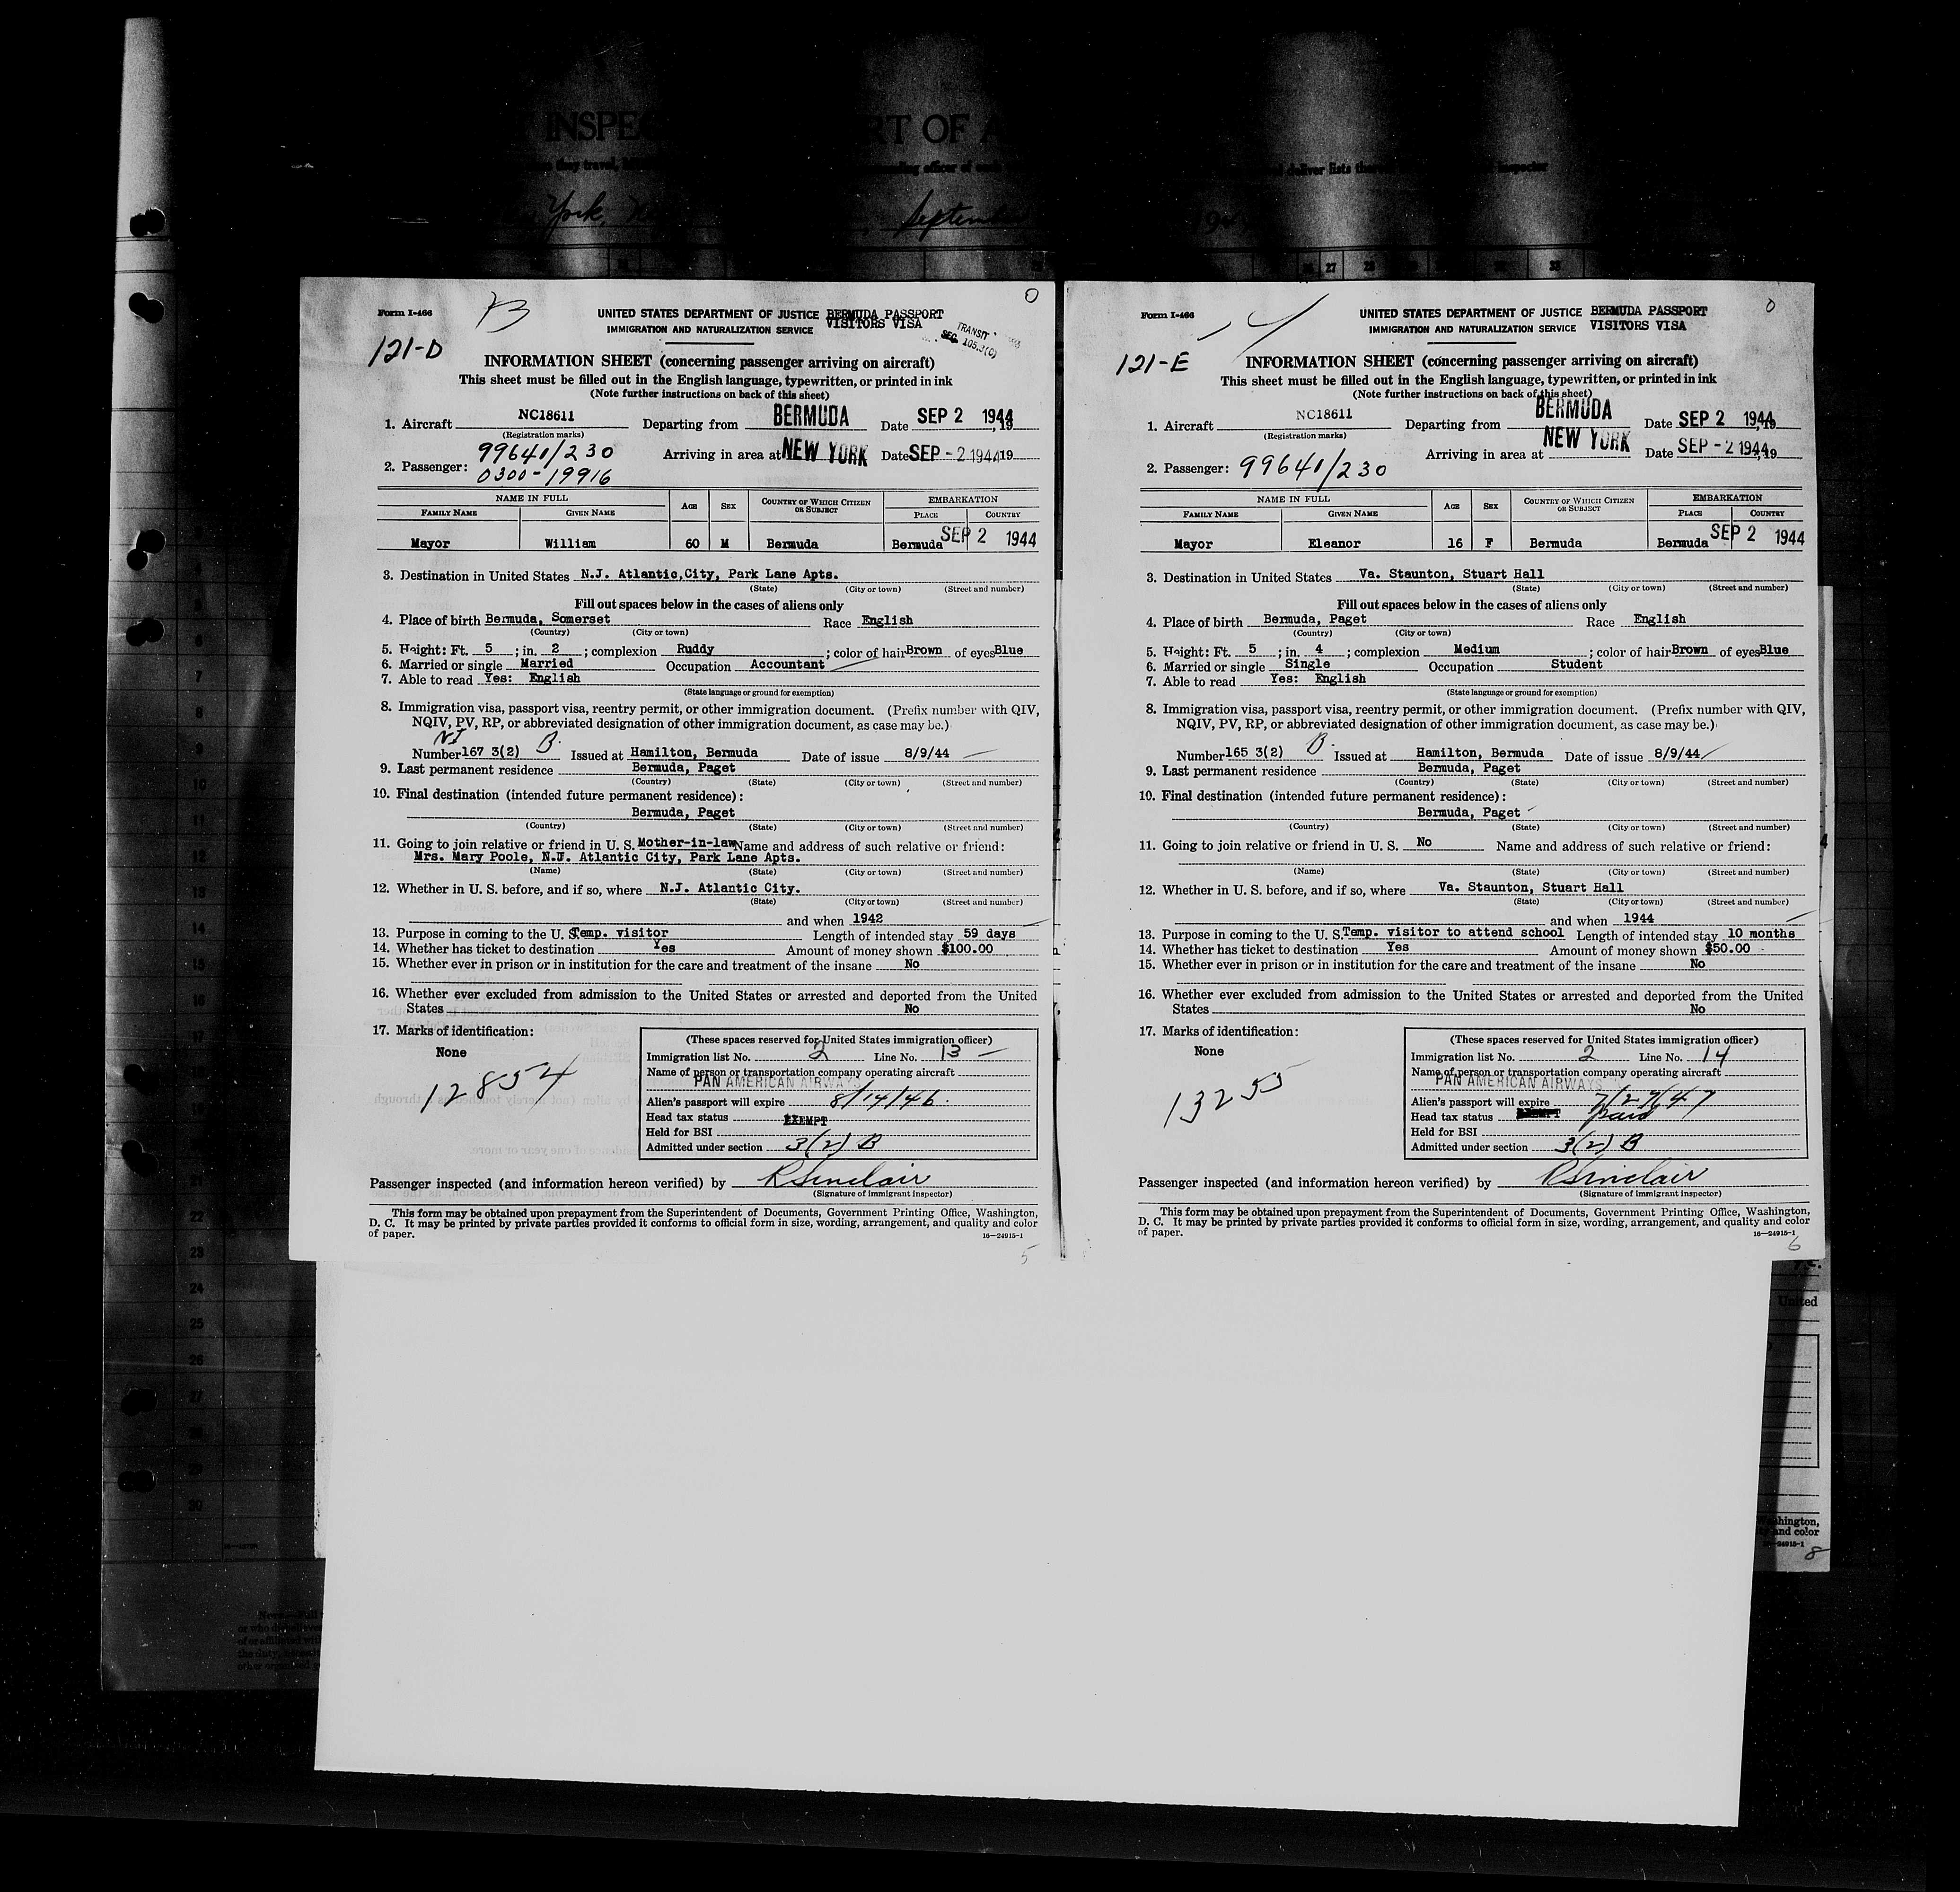 INSPE RT OF A
York,
September
27
Form I-466
B
0
UNITED STATES DEPARTMENT OF JUSTICE BERMUDA PASSPORT
IMMIGRATION AND NATURALIZATION SERVICE VISITORS VISA
TRANSIT
SEC. 105.3(C)
121-D
INFORMATION SHEET (concerning passenger arriving on aircraft)
This sheet must be filled out in the English language, typewritten, or printed in ink
(Note further instructions on back of this sheet)
1. Aircraft NC18611 Departing from BERMUDA Date SEP 2 1944, 19
(Registration marks)
99640/230
Arriving in area at NEW YORK Date SEP - 2 1944 19
2. Passenger: 0300-19916
NAME IN FULL AGE SEX COUNTRY OF WHICH CITIZEN OR SUBJECT EMBARKATION
FAMILY NAME GIVEN NAME PLACE COUNTRY
Mayor William 60 M Bermuda Bermuda SEP 2 1944
3. Destination in United States N.J. Atlantic,City, Park Lane Apts.
(State) (City or town) (Street and number)
Fill out spaces below in the cases of aliens only
4. Place of birth Bermuda, Somerset Race English
(Country) (City or town)
5. Height: Ft. 5 ; in. 2 ; complexion Ruddy ; color of hair Brown of eyes Blue
6. Married or single Married Occupation Accountant
7. Able to read Yes: English
(State language or ground for exemption)
8. Immigration visa, passport visa, reentry permit, or other immigration document. (Prefix number with QIV,
NQIV, PV, RP, or abbreviated designation of other immigration document, as case may be.)
Number 167 3(2) B. Issued at Hamilton, Bermuda Date of issue 8/9/44
9. Last permanent residence Bermuda, Paget
(Country) (State) (City or town) (Street and number)
10. Final destination (intended future permanent residence):
Bermuda, Paget
(Country) (State) (City or town) (Street and number)
11. Going to join relative or friend in U. S. Mother-in-law Name and address of such relative or friend:
Mrs. Mary Poole, N.J. Atlantic City, Park Lane Apts.
(Name) (State) (City or town) (Street and number)
12. Whether in U. S. before, and if so, where N.J. Atlantic City.
(State) (City or town) (Street and number)
and when 1942
13. Purpose in coming to the U. S. Temp. visitor Length of intended stay 59 days
14. Whether has ticket to destination Yes Amount of money shown $100.00
15. Whether ever in prison or in institution for the care and treatment of the insane No
16. Whether ever excluded from admission to the United States or arrested and deported from the United
States No
17. Marks of identification:
None
12854
(These spaces reserved for United States immigration officer)
Immigration list No. 2 Line No. 13
Name of person or transportation company operating aircraft
PAN AMERICAN AIRWAYS
Alien's passport will expire 8/14/46.
Head tax status EXEMPT
Held for BSI
Admitted under section 3(2) B
Passenger inspected (and information hereon verified) by R Sinclair
(Signature of immigrant inspector)
This form may be obtained upon prepayment from the Superintendent of Documents, Government Printing Office, Washington,
D. C. It may be printed by private parties provided it conforms to official form in size, wording, arrangement, and quality and color
of paper.
16—24915-1
5
Form I-466
0
UNITED STATES DEPARTMENT OF JUSTICE BERMUDA PASSPORT
IMMIGRATION AND NATURALIZATION SERVICE VISITORS VISA
121-E
INFORMATION SHEET (concerning passenger arriving on aircraft)
This sheet must be filled out in the English language, typewritten, or printed in ink
(Note further instructions on back of this sheet)
1. Aircraft NC18611 Departing from BERMUDA Date SEP 2 1944, 19
(Registration marks)
Arriving in area at NEW YORK Date SEP - 2 1944, 19
2. Passenger: 99640/230
NAME IN FULL AGE SEX COUNTRY OF WHICH CITIZEN OR SUBJECT EMBARKATION
FAMILY NAME GIVEN NAME PLACE COUNTRY
Mayor Eleanor 16 F Bermuda Bermuda SEP 2 1944
3. Destination in United States Va. Staunton, Stuart Hall
(State) (City or town) (Street and number)
Fill out spaces below in the cases of aliens only
4. Place of birth Bermuda, Paget Race English
(Country) (City or town)
5. Height: Ft. 5 ; in. 4 ; complexion Medium ; color of hair Brown of eyes Blue
6. Married or single Single Occupation Student
7. Able to read Yes: English
(State language or ground for exemption)
8. Immigration visa, passport visa, reentry permit, or other immigration document. (Prefix number with QIV,
NQIV, PV, RP, or abbreviated designation of other immigration document, as case may be.)
Number 165 3(2) B. Issued at Hamilton, Bermuda Date of issue 8/9/44
9. Last permanent residence Bermuda, Paget
(Country) (State) (City or town) (Street and number)
10. Final destination (intended future permanent residence):
Bermuda, Paget
(Country) (State) (City or town) (Street and number)
11. Going to join relative or friend in U. S. No Name and address of such relative or friend:
(Name) (State) (City or town) (Street and number)
12. Whether in U. S. before, and if so, where Va. Staunton, Stuart Hall
(State) (City or town) (Street and number)
and when 1944
13. Purpose in coming to the U. S. Temp. visitor to attend school Length of intended stay 10 months
14. Whether has ticket to destination Yes Amount of money shown $50.00
15. Whether ever in prison or in institution for the care and treatment of the insane No
16. Whether ever excluded from admission to the United States or arrested and deported from the United
States No
17. Marks of identification:
None
13255
(These spaces reserved for United States immigration officer)
Immigration list No. 2 Line No. 14
Name of person or transportation company operating aircraft
PAN AMERICAN AIRWAYS
Alien's passport will expire 7/27/47
Head tax status paid
Held for BSI
Admitted under section 3(2) B
Passenger inspected (and information hereon verified) by R Sinclair
(Signature of immigrant inspector)
This form may be obtained upon prepayment from the Superintendent of Documents, Government Printing Office, Washington,
D. C. It may be printed by private parties provided it conforms to official form in size, wording, arrangement, and quality and color
of paper.
16—24915-1
6
United
and color
8